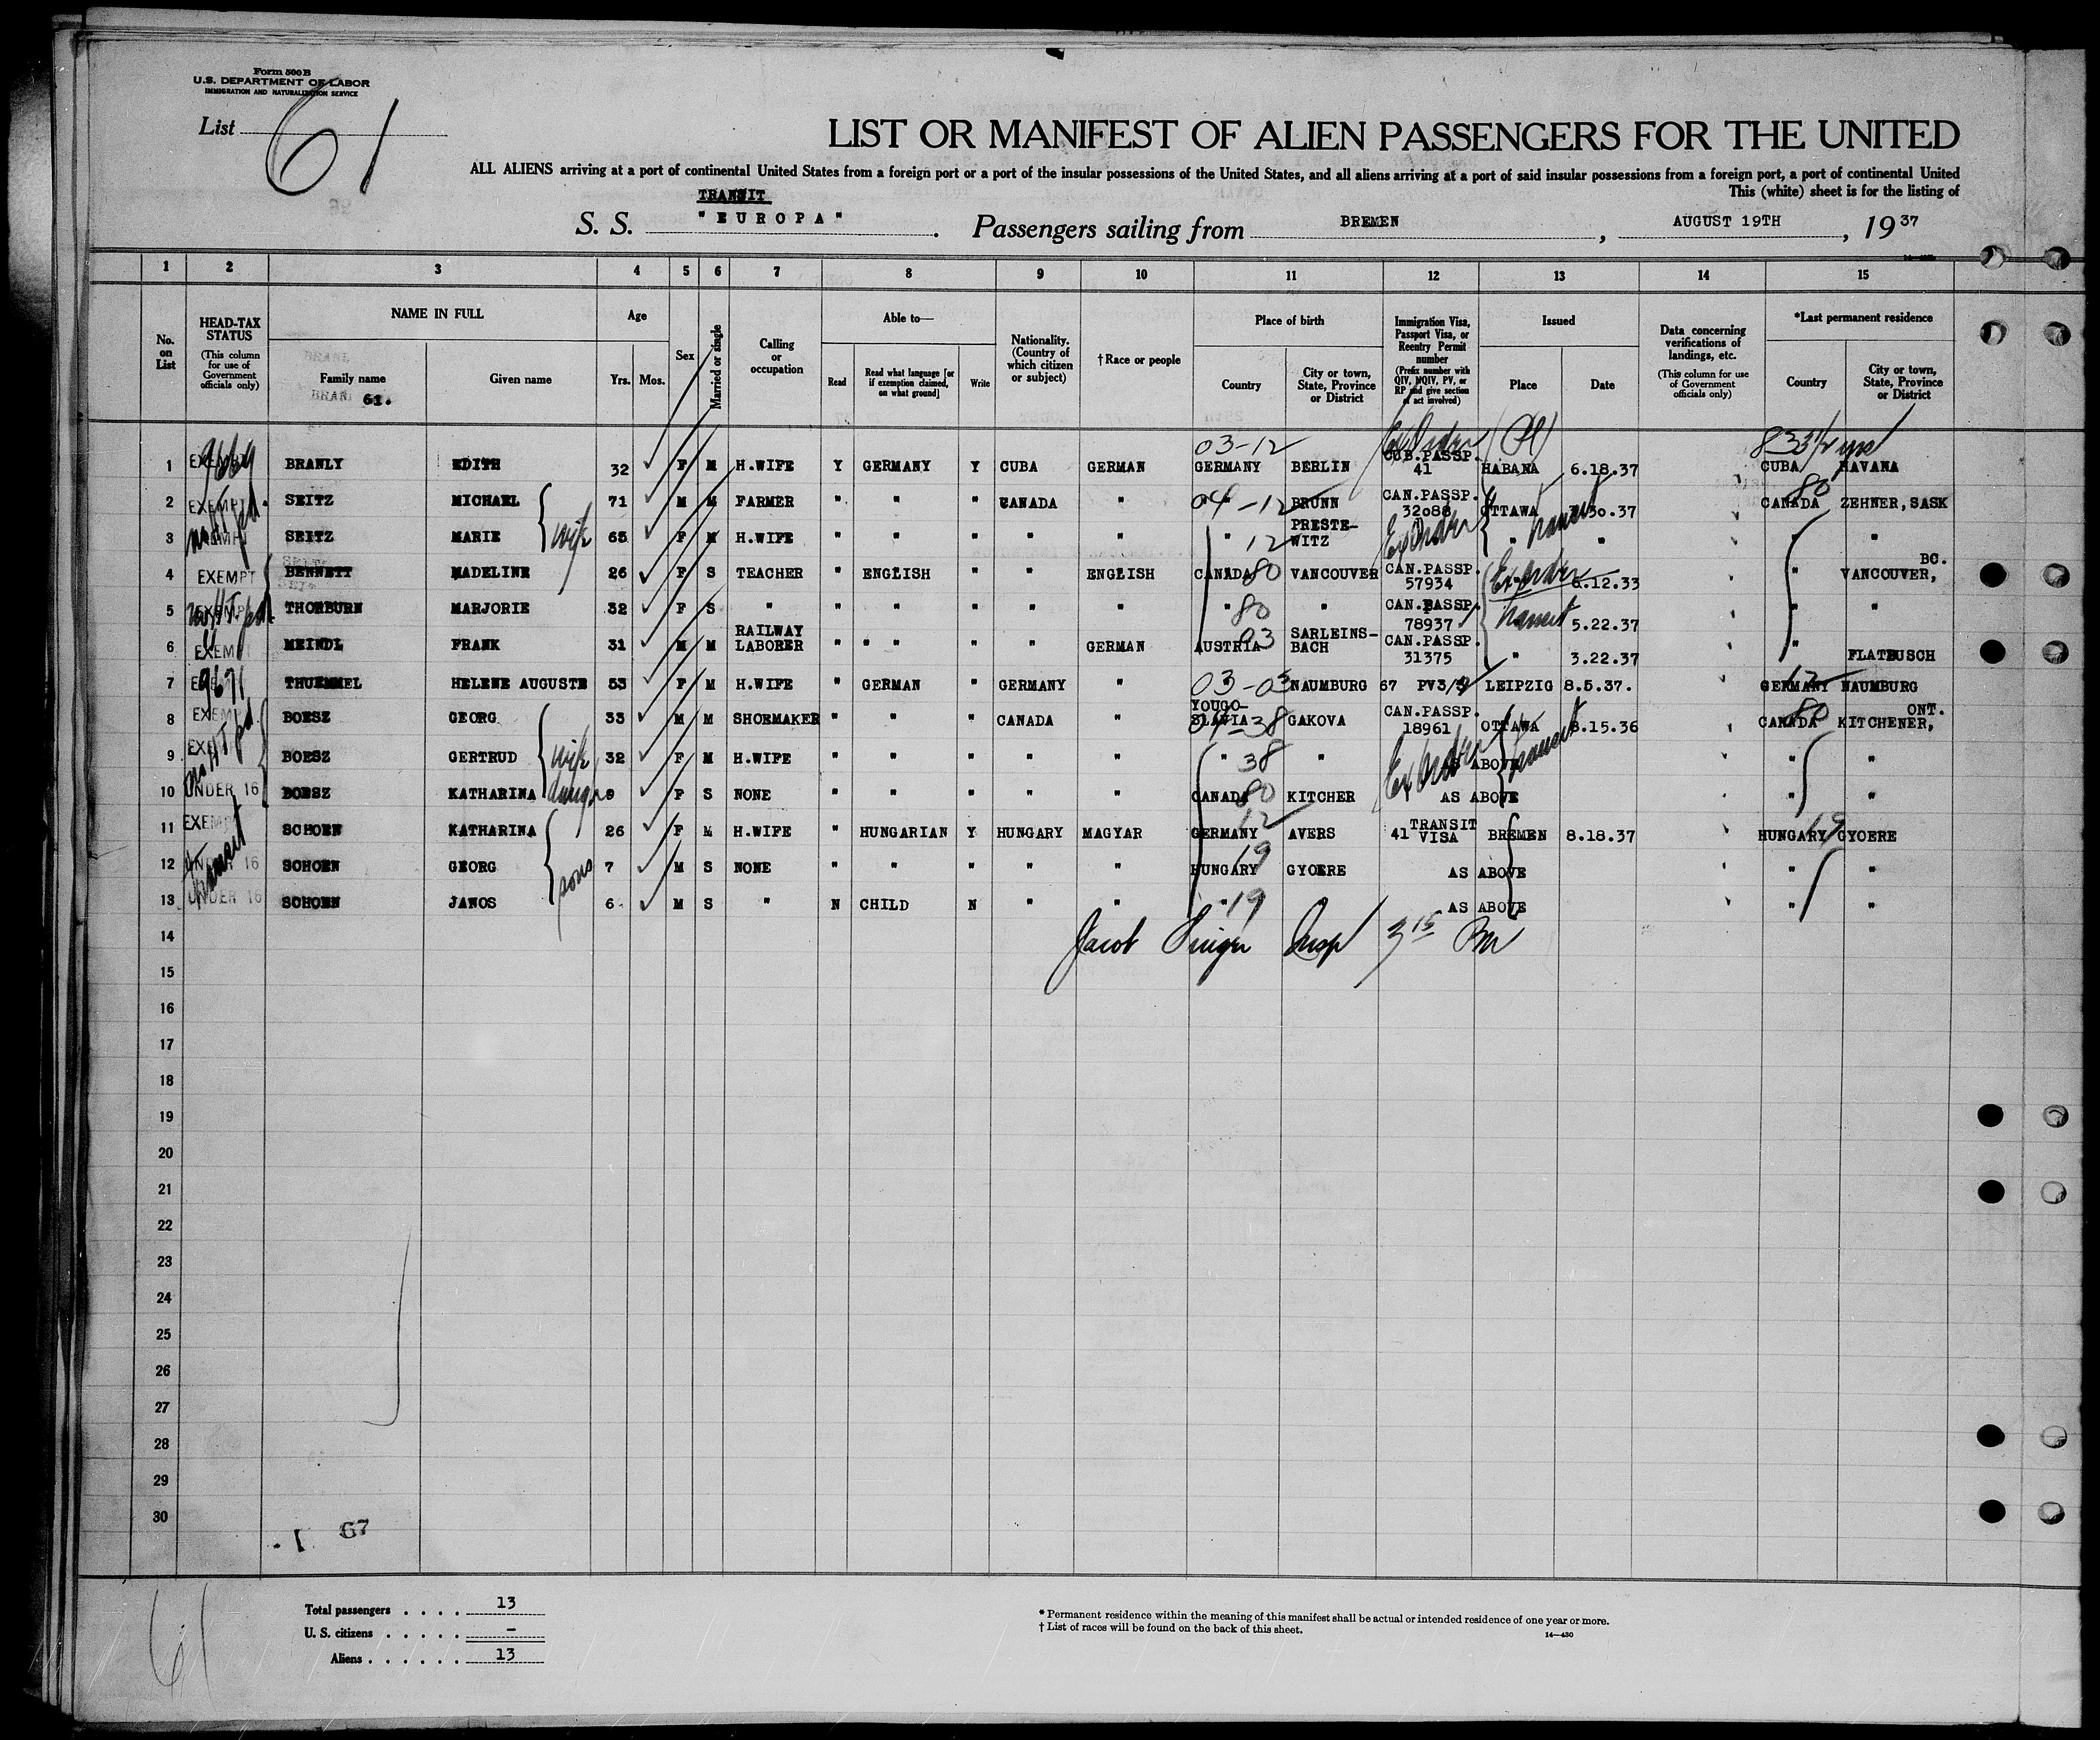 Form 500 B
U.S. DEPARTMENT OF LABOR
IMMIGRATION AND NATURALIZATION SERVICE
List 61
LIST OR MANIFEST OF ALIEN PASSENGERS FOR THE UNITED
ALL ALIENS arriving at a port of continental United States from a foreign port or a port of the insular possessions of the United States, and all aliens arriving at a port of said insular possessions from a foreign port, a port of continental United
This (white) sheet is for the listing of
TRANSIT
S. S. "EUROPA". Passengers sailing from BREMEN, AUGUST 19TH, 1937
1 2 3 4 5 6 7 8 9 10 11 12 13 14 15
No. on List
HEAD-TAX STATUS (This column for use of Government officials only)
NAME IN FULL
Family name Given name
61.
Age Yrs. Mos.
Sex
Married or single
Calling or occupation
Able to—
Read Read what language [or if exemption claimed, on what ground] Write
Nationality. (Country of which citizen or subject)
† Race or people
Place of birth
Country City or town, State, Province or District
Immigration Visa, Passport Visa, or Reentry Permit number (Prefix number with QIV, NQIV, PV, or RP and give section of act involved)
Issued
Place Date
Data concerning verifications of landings, etc. (This column for use of Government officials only)
*Last permanent residence
Country City or town, State, Province or District
03-12
1 EXEMPT BRANLY EDITH 32 F M H.WIFE Y GERMANY Y CUBA GERMAN GERMANY BERLIN CUB.PASSP. 41 HABANA 6.18.37 CUBA HAVANA
2 EXEMPT SEITZ MICHAEL 71 M M FARMER " " " CANADA " " 04-12 BRUNN CAN.PASSP. 32088 OTTAWA 30.37 CANADA 80 ZEHNER, SASK
3 EXEMPT SEITZ MARIE wife 65 F M H.WIFE " " " " " " 12 PRESTE-WITZ Ex Order " transit " " "
4 EXEMPT BENNETT MADELINE 26 F S TEACHER " ENGLISH " " ENGLISH CANADA 80 VANCOUVER CAN.PASSP. 57934 Ex Order 6.12.33 " VANCOUVER, BC.
5 EXEMPT THORBURN MARJORIE 32 F S " " " " " " " 80 " CAN.PASSP. 78937 transit 5.22.37 " "
6 EXEMPT MEINDL FRANK 31 M M RAILWAY LABORER " " " " " GERMAN AUSTRIA 03 SARLEINS-BACH CAN.PASSP. 31375 " 3.22.37 " FLATBUSCH
7 9671 THUEMMEL HELENE AUGUSTE 53 F M H.WIFE " GERMAN " GERMANY " 03-03 NAUMBURG 67 PV3/ LEIPZIG 8.5.37. GERMANY 12 NAUMBURG
8 EXEMPT BOESZ GEORG 33 M M SHOEMAKER " " " CANADA " YOUGO-SLAVIA 38 GAKOVA CAN.PASSP. 18961 OTTAWA 8.15.36 CANADA 80 KITCHENER, ONT.
9 BOESZ GERTRUD wife 32 F M H.WIFE " " " " " " 38 " Ex Order AS ABOVE transit " "
10 UNDER 16 BOESZ KATHARINA 9 F S NONE " " " " " CANADA 80 KITCHER AS ABOVE " "
11 EXEMPT SCHOEN KATHARINA 26 F M H.WIFE " HUNGARIAN Y HUNGARY MAGYAR GERMANY 12 AVERS 41 TRANSIT VISA BREMEN 8.18.37 HUNGARY 19 GYOERE
12 UNDER 16 transit SCHOEN GEORG sons 7 M S NONE " " " " " HUNGARY 19 GYOERE AS ABOVE " "
13 UNDER 16 SCHOEN JANOS 6 M S " N CHILD N " " " 19 AS ABOVE " "
14 Jacob Singer Insp 3 15 PM
15
16
17
18
19
20
21
22
23
24
25
26
27
28
29
30
67
61
Total passengers . . . . 13
U. S. citizens . . . . . –
Aliens . . . . . . 13
* Permanent residence within the meaning of this manifest shall be actual or intended residence of one year or more.
† List of races will be found on the back of this sheet.
14—430